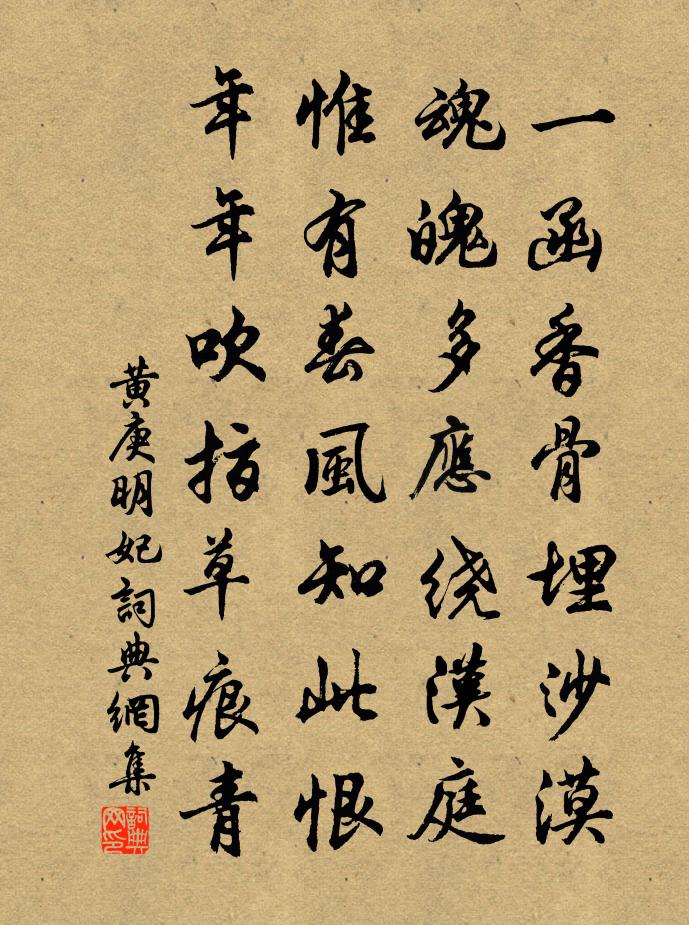 一函香骨埋沙漠
魂魄多應绕漢庭
惟有春風知此恨
年年吹指草痕青
黄庚明妃詞典網集
詞典网印